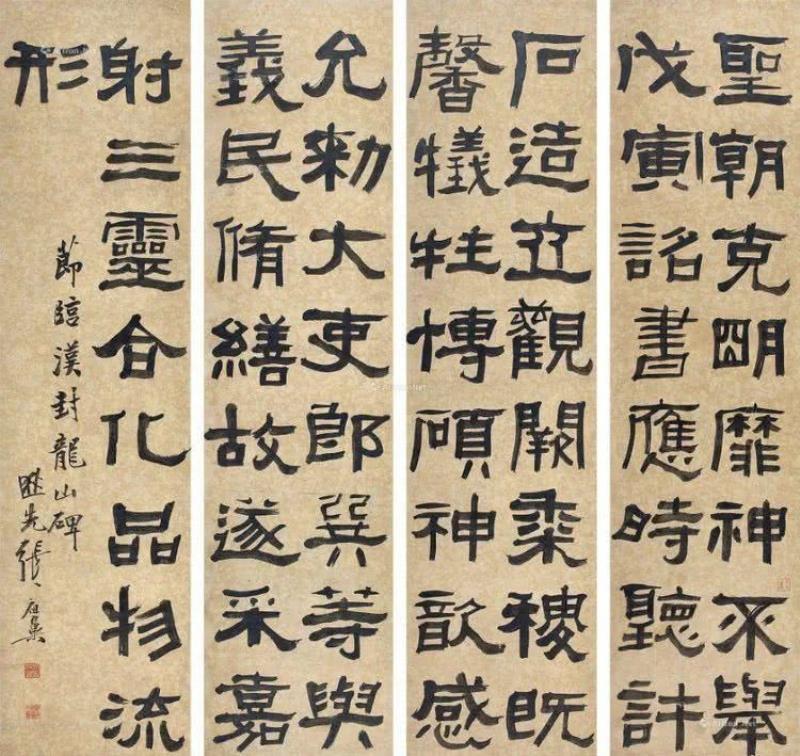 聖朝克明靡神不舉
戊寅詔書應時聽許
石造立觀闕黍稷既
馨犧牲博碩神歆感
允勑大吏郎巽等與
義民脩繕故遂采嘉
射三靈合化品物流
形
節臨漢封龍山碑
張